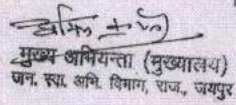 मुख्य अभियन्ता (मुख्यालय)
जन. स्वा. अभि. विभाग, राज., जयपुर